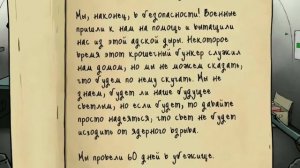 Мы, наконец, в безопасности! Военные
пришли к нам на помощь и вытащили
нас из этой адской дыры. Некоторое
время этот крошечный бункер служил
нам домом, но мы не можем сказать,
что будем по нему скучать. Мы не
знаем, будет ли наше будущее
светлым, но если будет, то давайте
просто надеяться, что свет не будет
исходить от ядерного взрыва.
Мы провели 60 дней в убежище.